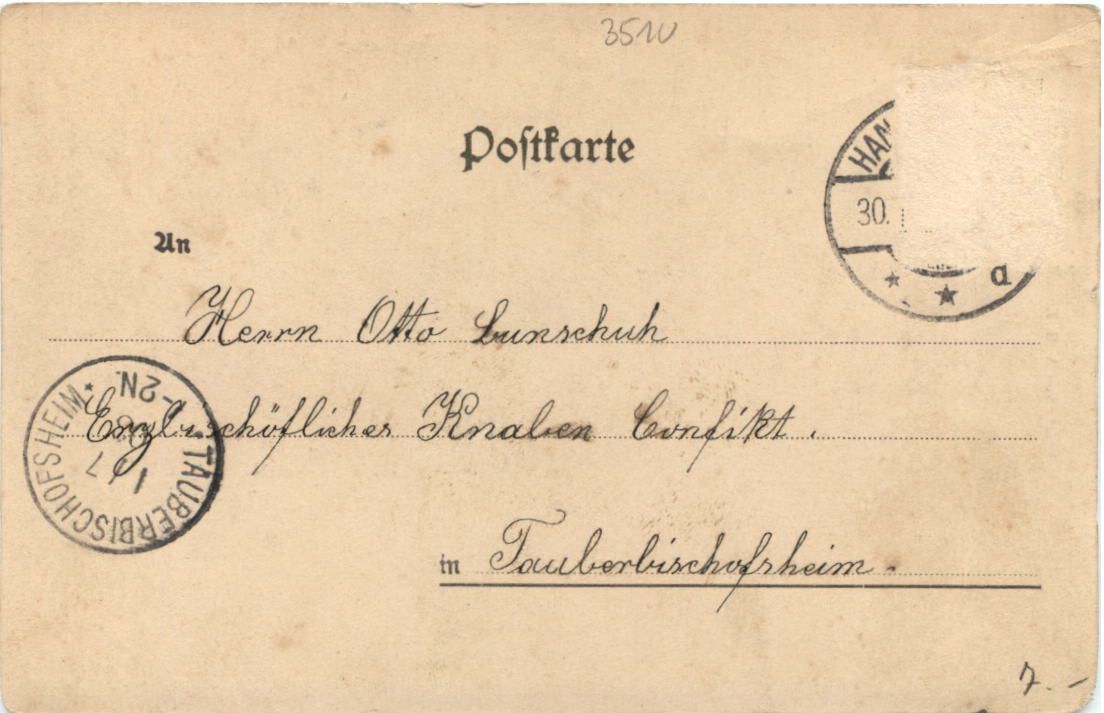 3510
Postkarte
HAN
30.
a
An
Herrn Otto Lunschuh
Erzbischöflicher Knaben Confikt.
in Tauberbischofsheim.
* TAUBERBISCHOFSHEIM *
1-2N.
1 7
7.-